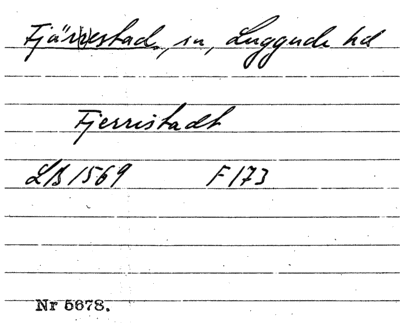 Fjärrestad, sn, Luggude hd
Fjerristadt
LB 1569 F 173
Nr 5678.